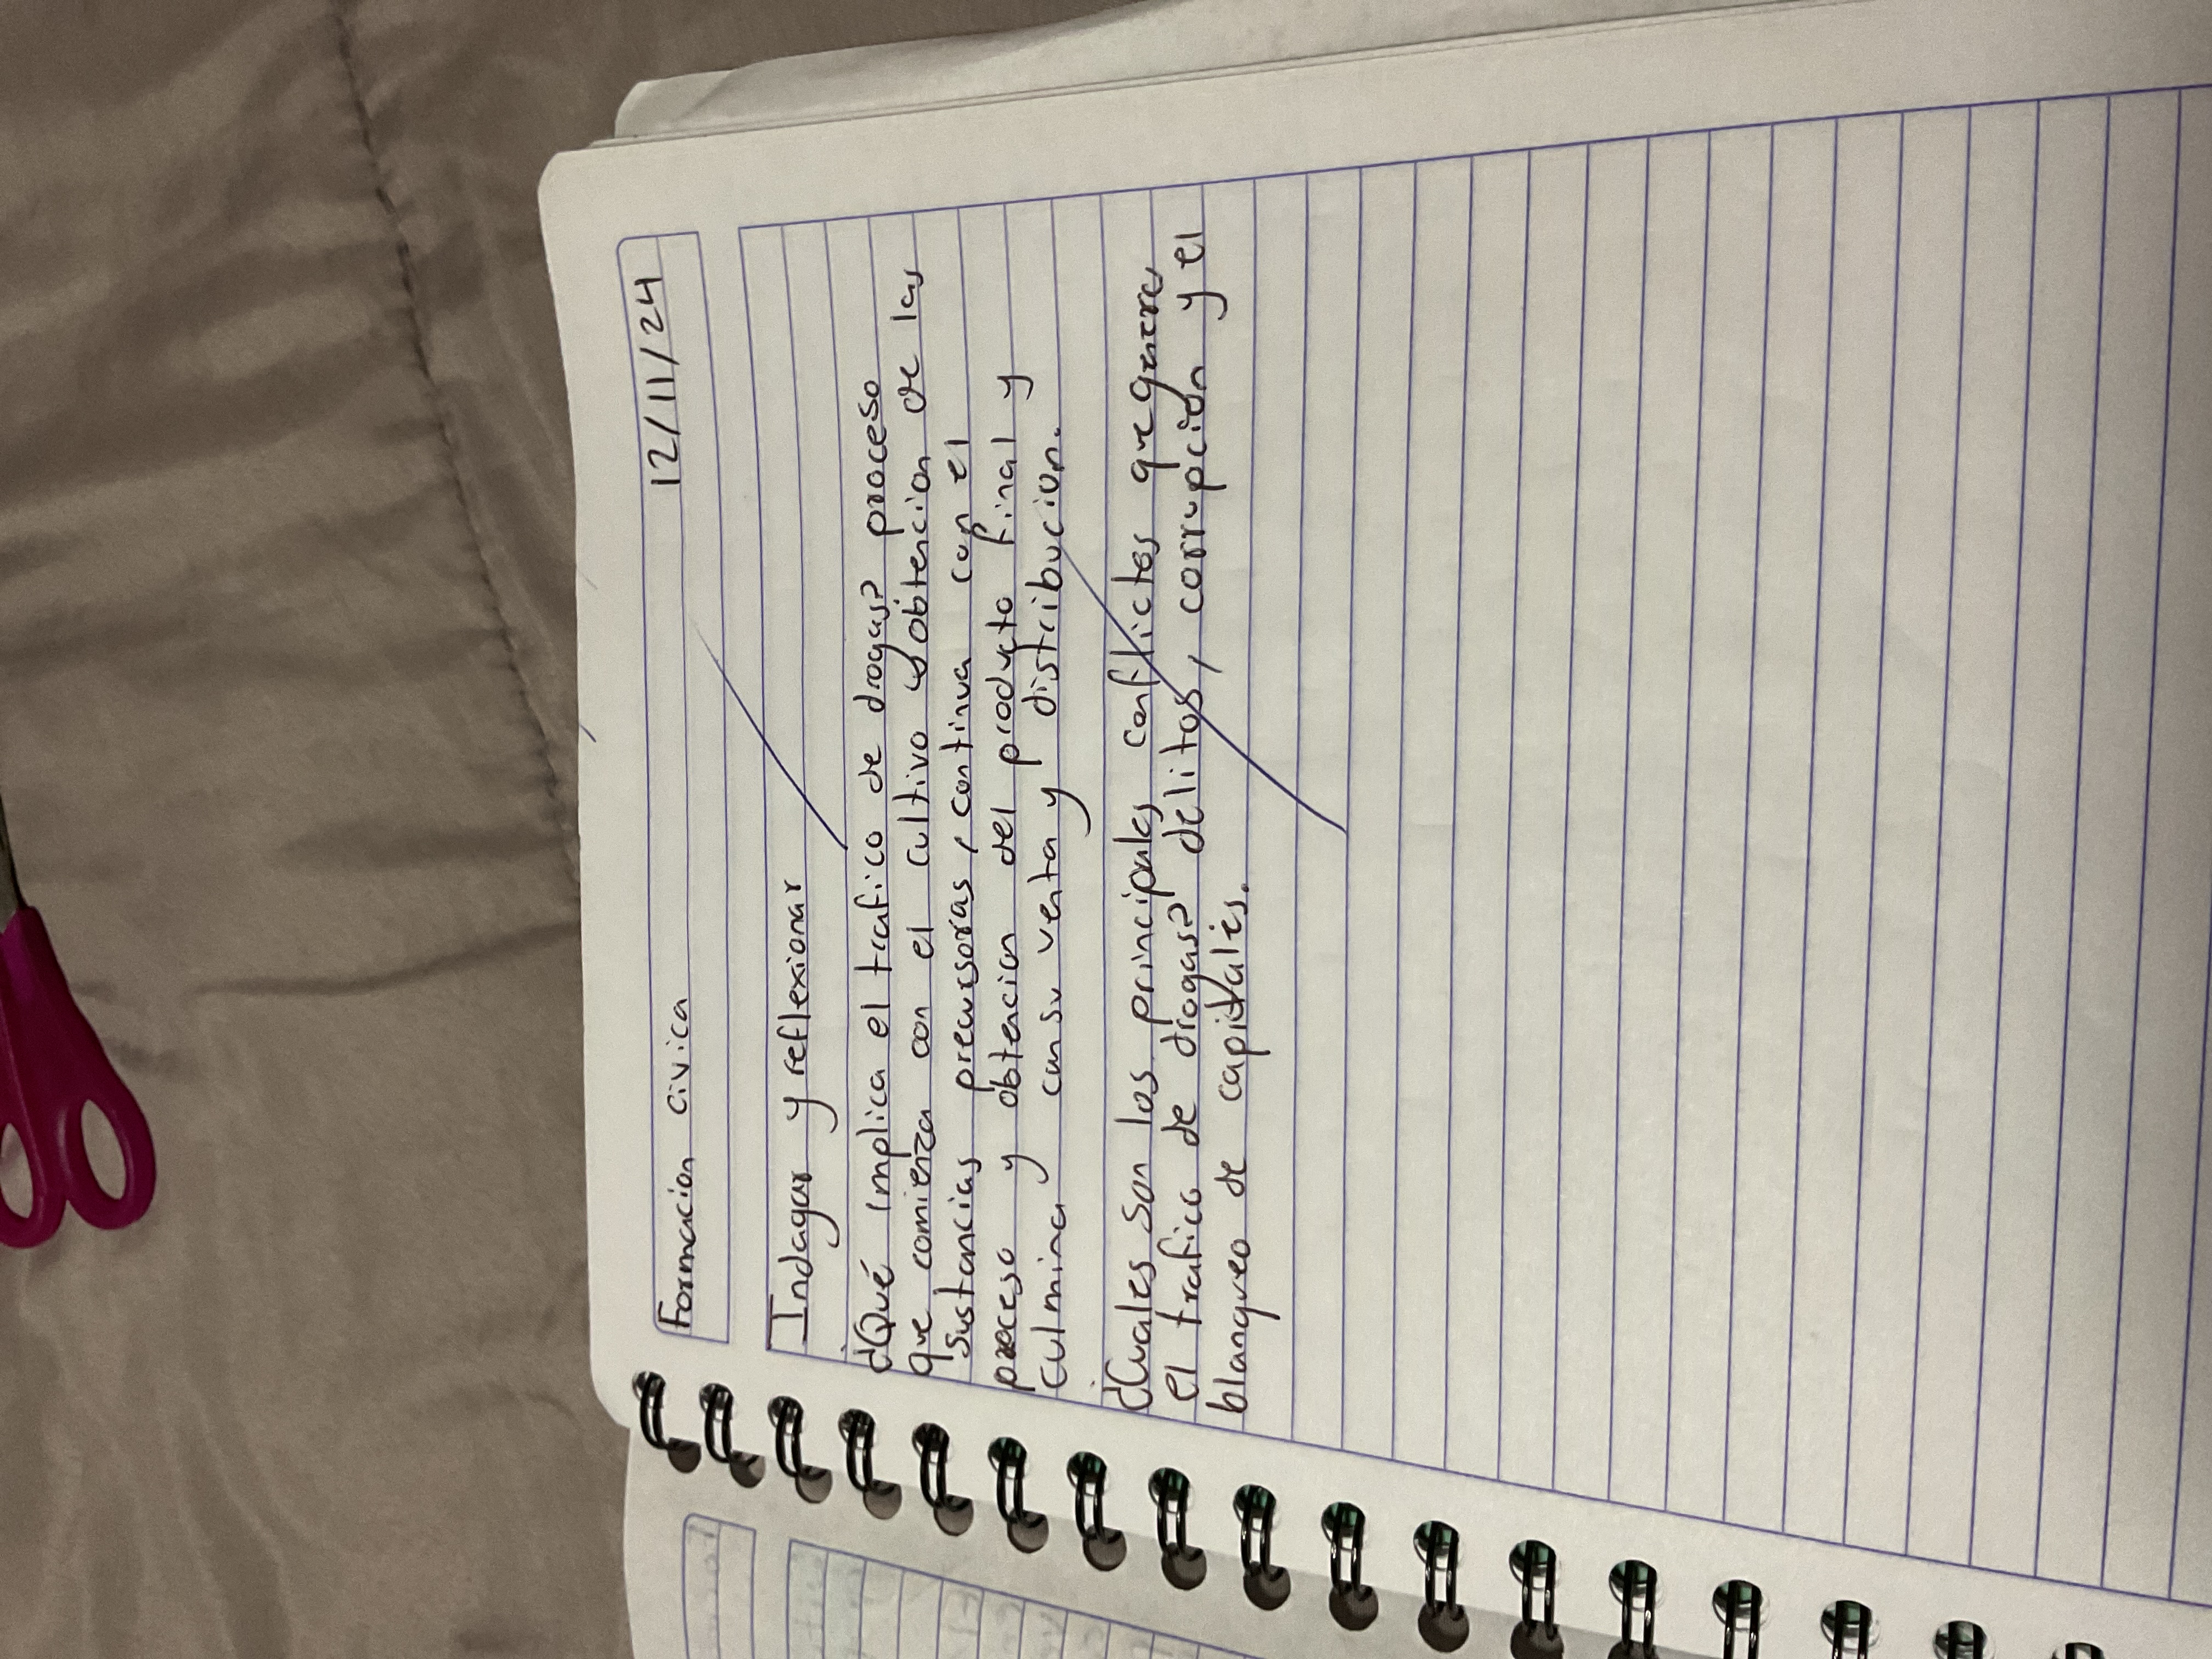 Formacion civica 12/11/24
Indagar y reflexionar
¿Qué implica el trafico de drogas? proceso
que comienza con el cultivo y obtencion de las
sustancias precursoras, continua con el
proceso y obtencion del producto final y
culmina con su venta y distribucion.
¿Cuales son los principales conflictos que genera
el trafico de drogas? delitos, corrupcion y el
blanqueo de capitales.